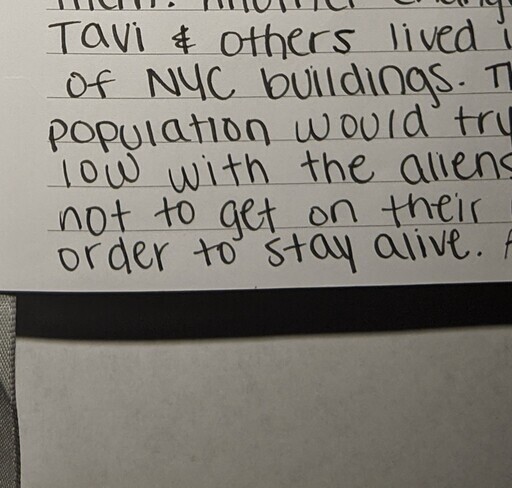 Tavi & others lived
of NYC buildings.
population would try
low with the aliens
not to get on their
order to stay alive.